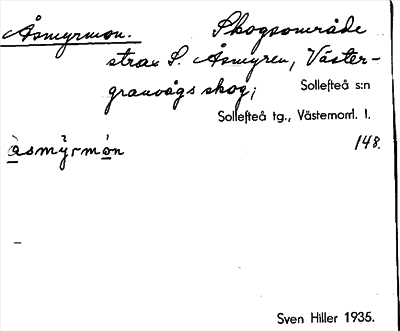 Åsmyrmon. Skogsområde
strax S. Åsmyren, Väster-
granvågs skog; Sollefteå s:n
Sollefteå tg., Västernorrl. l.
åsmỳrmón 148.
–
Sven Hiller 1935.